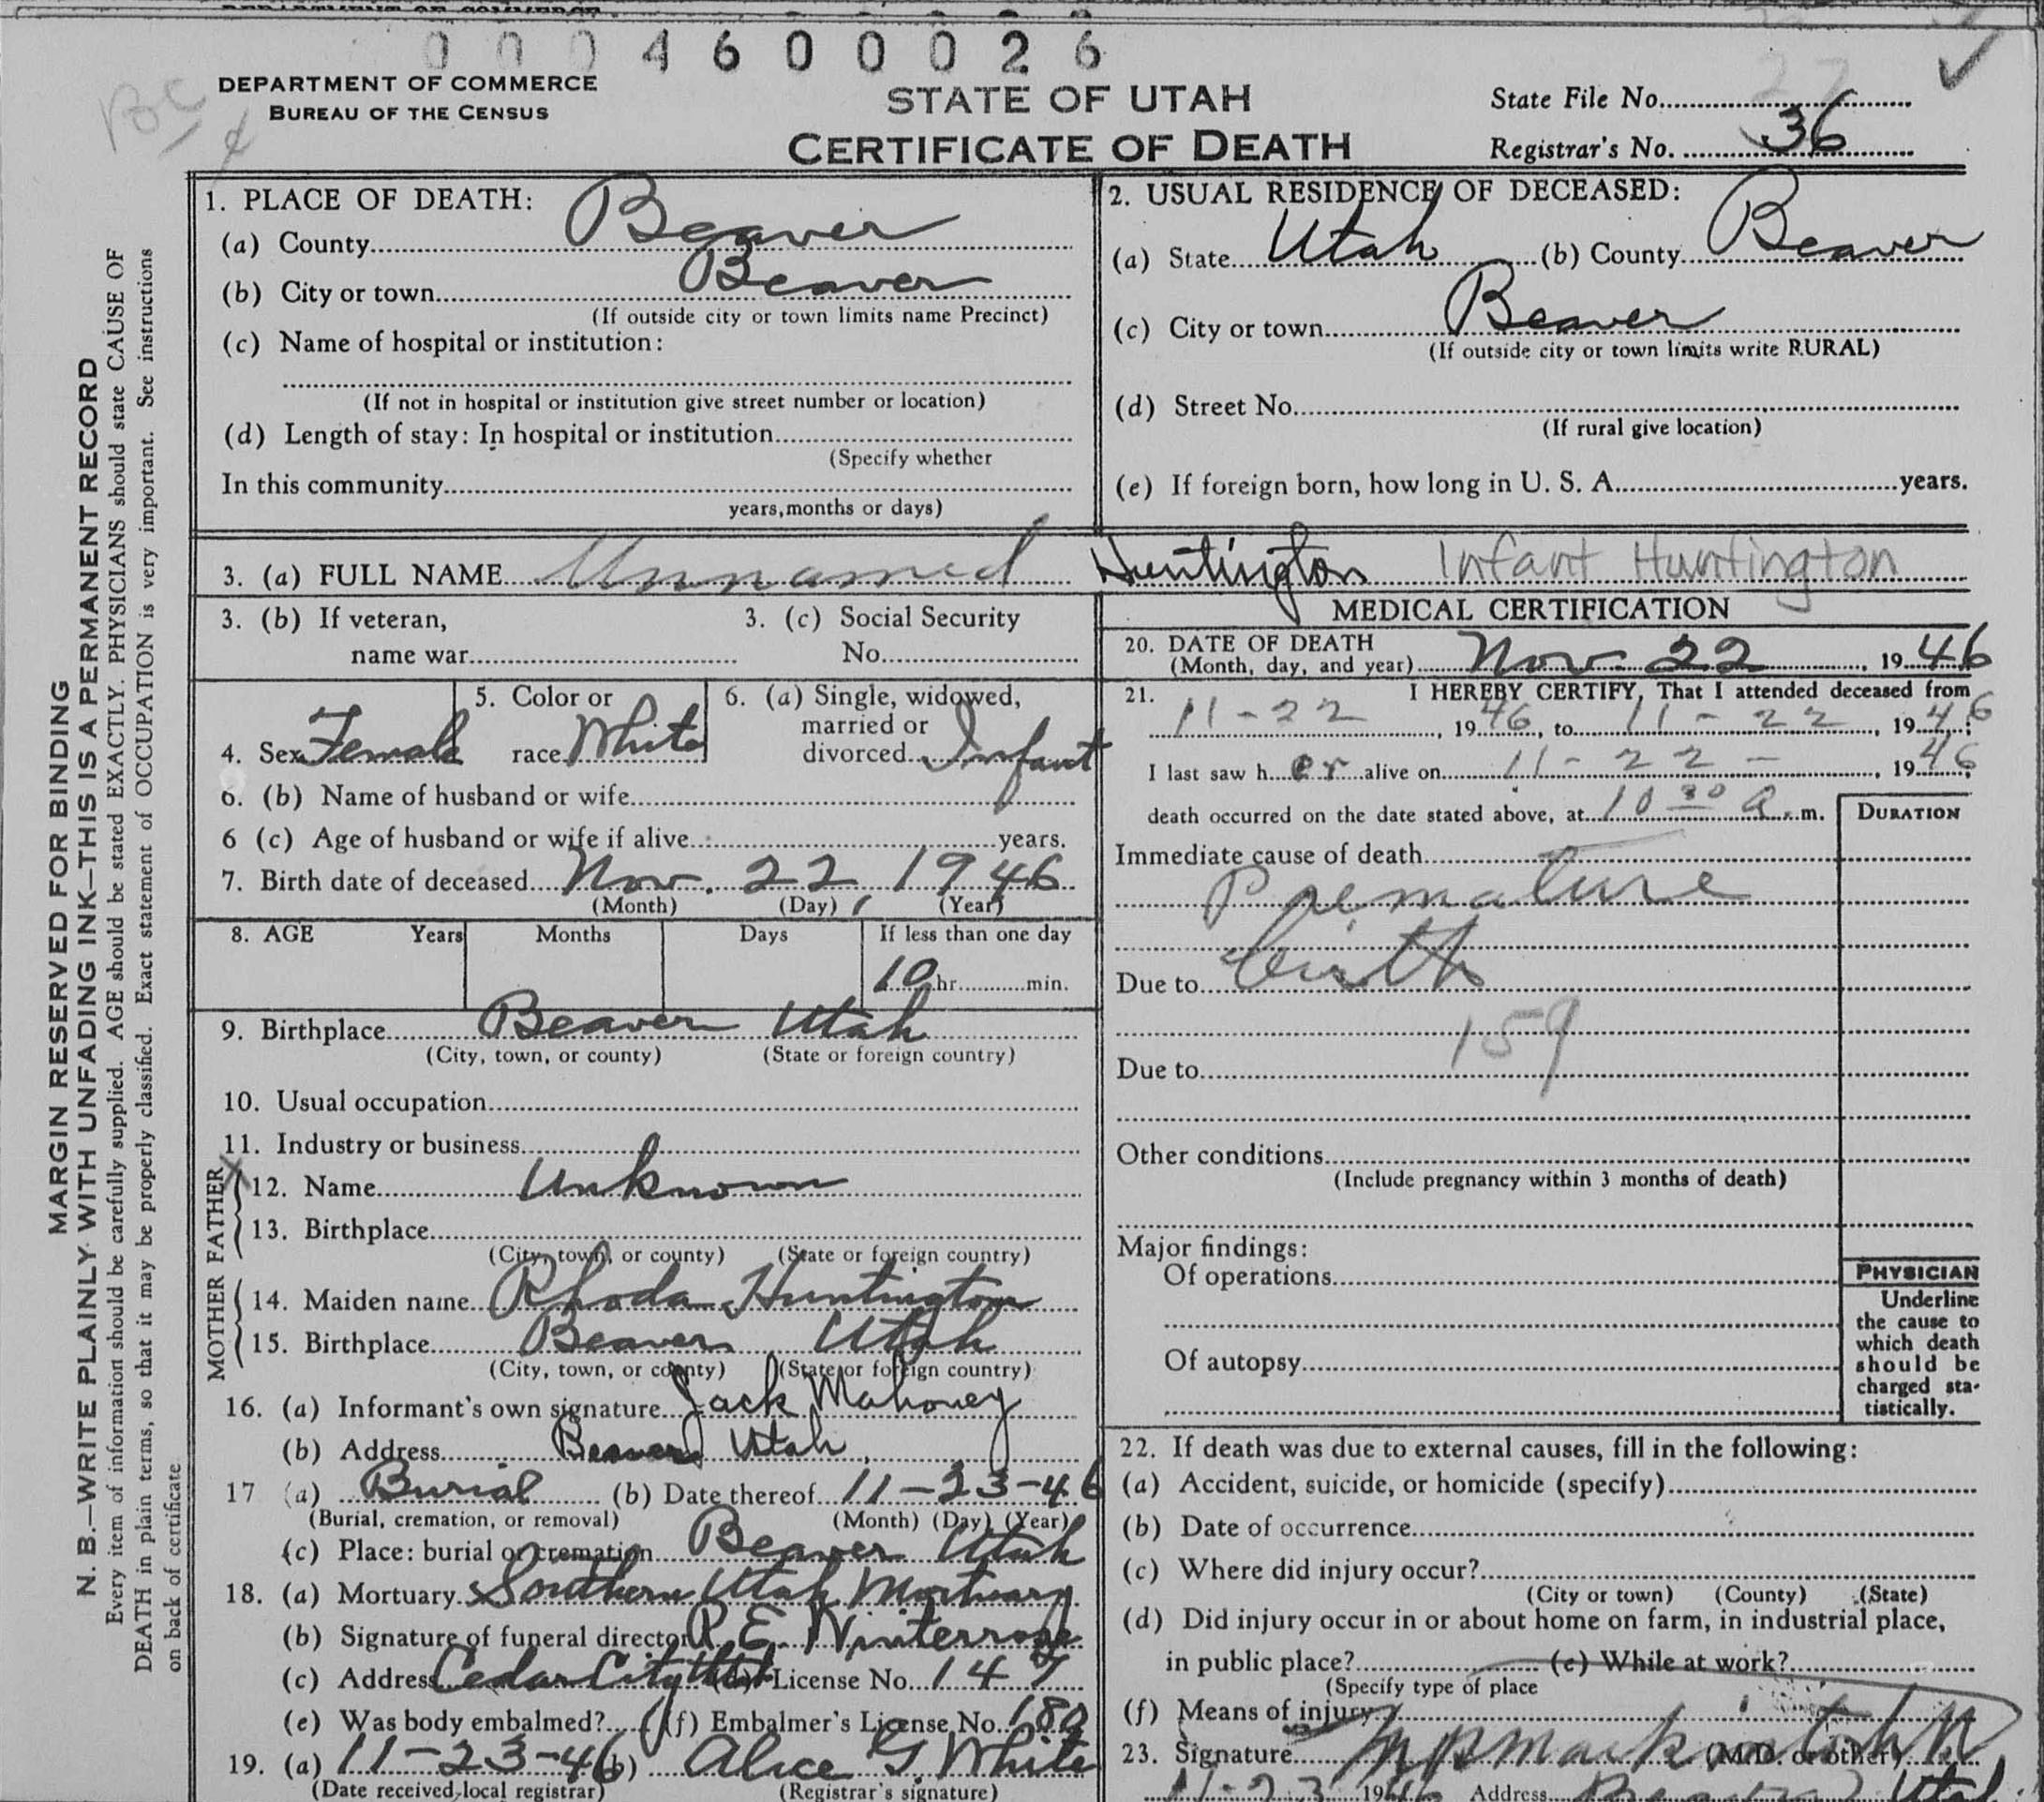 0 0 0 4 6 0 0 0 2 6
DEPARTMENT OF COMMERCE
BUREAU OF THE CENSUS
STATE OF UTAH
CERTIFICATE OF DEATH
State File No. 27
Registrar's No. 36
MARGIN RESERVED FOR BINDING
N. B.—WRITE PLAINLY WITH UNFADING INK—THIS IS A PERMANENT RECORD
Every item of information should be carefully supplied. AGE should be stated EXACTLY. PHYSICIANS should state CAUSE OF
DEATH in plain terms, so that it may be properly classified. Exact statement of OCCUPATION is very important. See instructions
on back of certificate
1. PLACE OF DEATH:
(a) County Beaver
(b) City or town Beaver
(If outside city or town limits name Precinct)
(c) Name of hospital or institution:
(If not in hospital or institution give street number or location)
(d) Length of stay: In hospital or institution
(Specify whether
In this community
years, months or days)
2. USUAL RESIDENCE OF DECEASED:
(a) State Utah (b) County Beaver
(c) City or town Beaver
(If outside city or town limits write RURAL)
(d) Street No.
(If rural give location)
(e) If foreign born, how long in U. S. A. years.
3. (a) FULL NAME Unnamed Huntington Infant Huntington
3. (b) If veteran, 3. (c) Social Security
name war No.
5. Color or 6. (a) Single, widowed,
married or
4. Sex Female race White divorced Infant
6. (b) Name of husband or wife
6 (c) Age of husband or wife if alive years.
7. Birth date of deceased Nov. 22, 1946
(Month) (Day) (Year)
8. AGE Years Months Days If less than one day
10 hr. min.
9. Birthplace Beaver Utah
(City, town, or county) (State or foreign country)
10. Usual occupation
11. Industry or business
FATHER
12. Name Unknown
13. Birthplace
(City, town, or county) (State or foreign country)
MOTHER
14. Maiden name Rhoda Huntington
15. Birthplace Beaver Utah
(City, town, or county) (State or foreign country)
16. (a) Informant's own signature Jack Mahoney
(b) Address Beaver Utah
17 (a) Burial (b) Date thereof 11-23-46
(Burial, cremation, or removal) (Month) (Day) (Year)
(c) Place: burial or cremation Beaver Utah
18. (a) Mortuary Southern Utah Mortuary
(b) Signature of funeral director R. E. Winterrose
(c) Address Cedar City Utah License No. 147
(e) Was body embalmed? (f) Embalmer's License No. 180
19. (a) 11-23-46 (b) Alice G. White
(Date received local registrar) (Registrar's signature)
MEDICAL CERTIFICATION
20. DATE OF DEATH
(Month, day, and year) Nov 22, 1946
21. I HEREBY CERTIFY, That I attended deceased from
11-22, 1946, to 11-22, 1946;
I last saw her alive on 11-22-, 1946;
death occurred on the date stated above, at 10 30 a. m.
DURATION
Immediate cause of death
Premature
Due to birth
159
Due to
Other conditions
(Include pregnancy within 3 months of death)
Major findings:
Of operations
Of autopsy
PHYSICIAN
Underline
the cause to
which death
should be
charged sta-
tistically.
22. If death was due to external causes, fill in the following:
(a) Accident, suicide, or homicide (specify)
(b) Date of occurrence
(c) Where did injury occur?
(City or town) (County) (State)
(d) Did injury occur in or about home on farm, in industrial place,
in public place? (e) While at work?
(Specify type of place
(f) Means of injury
23. Signature (M.D. or other)
11-23 1946 Address Beaver Utah